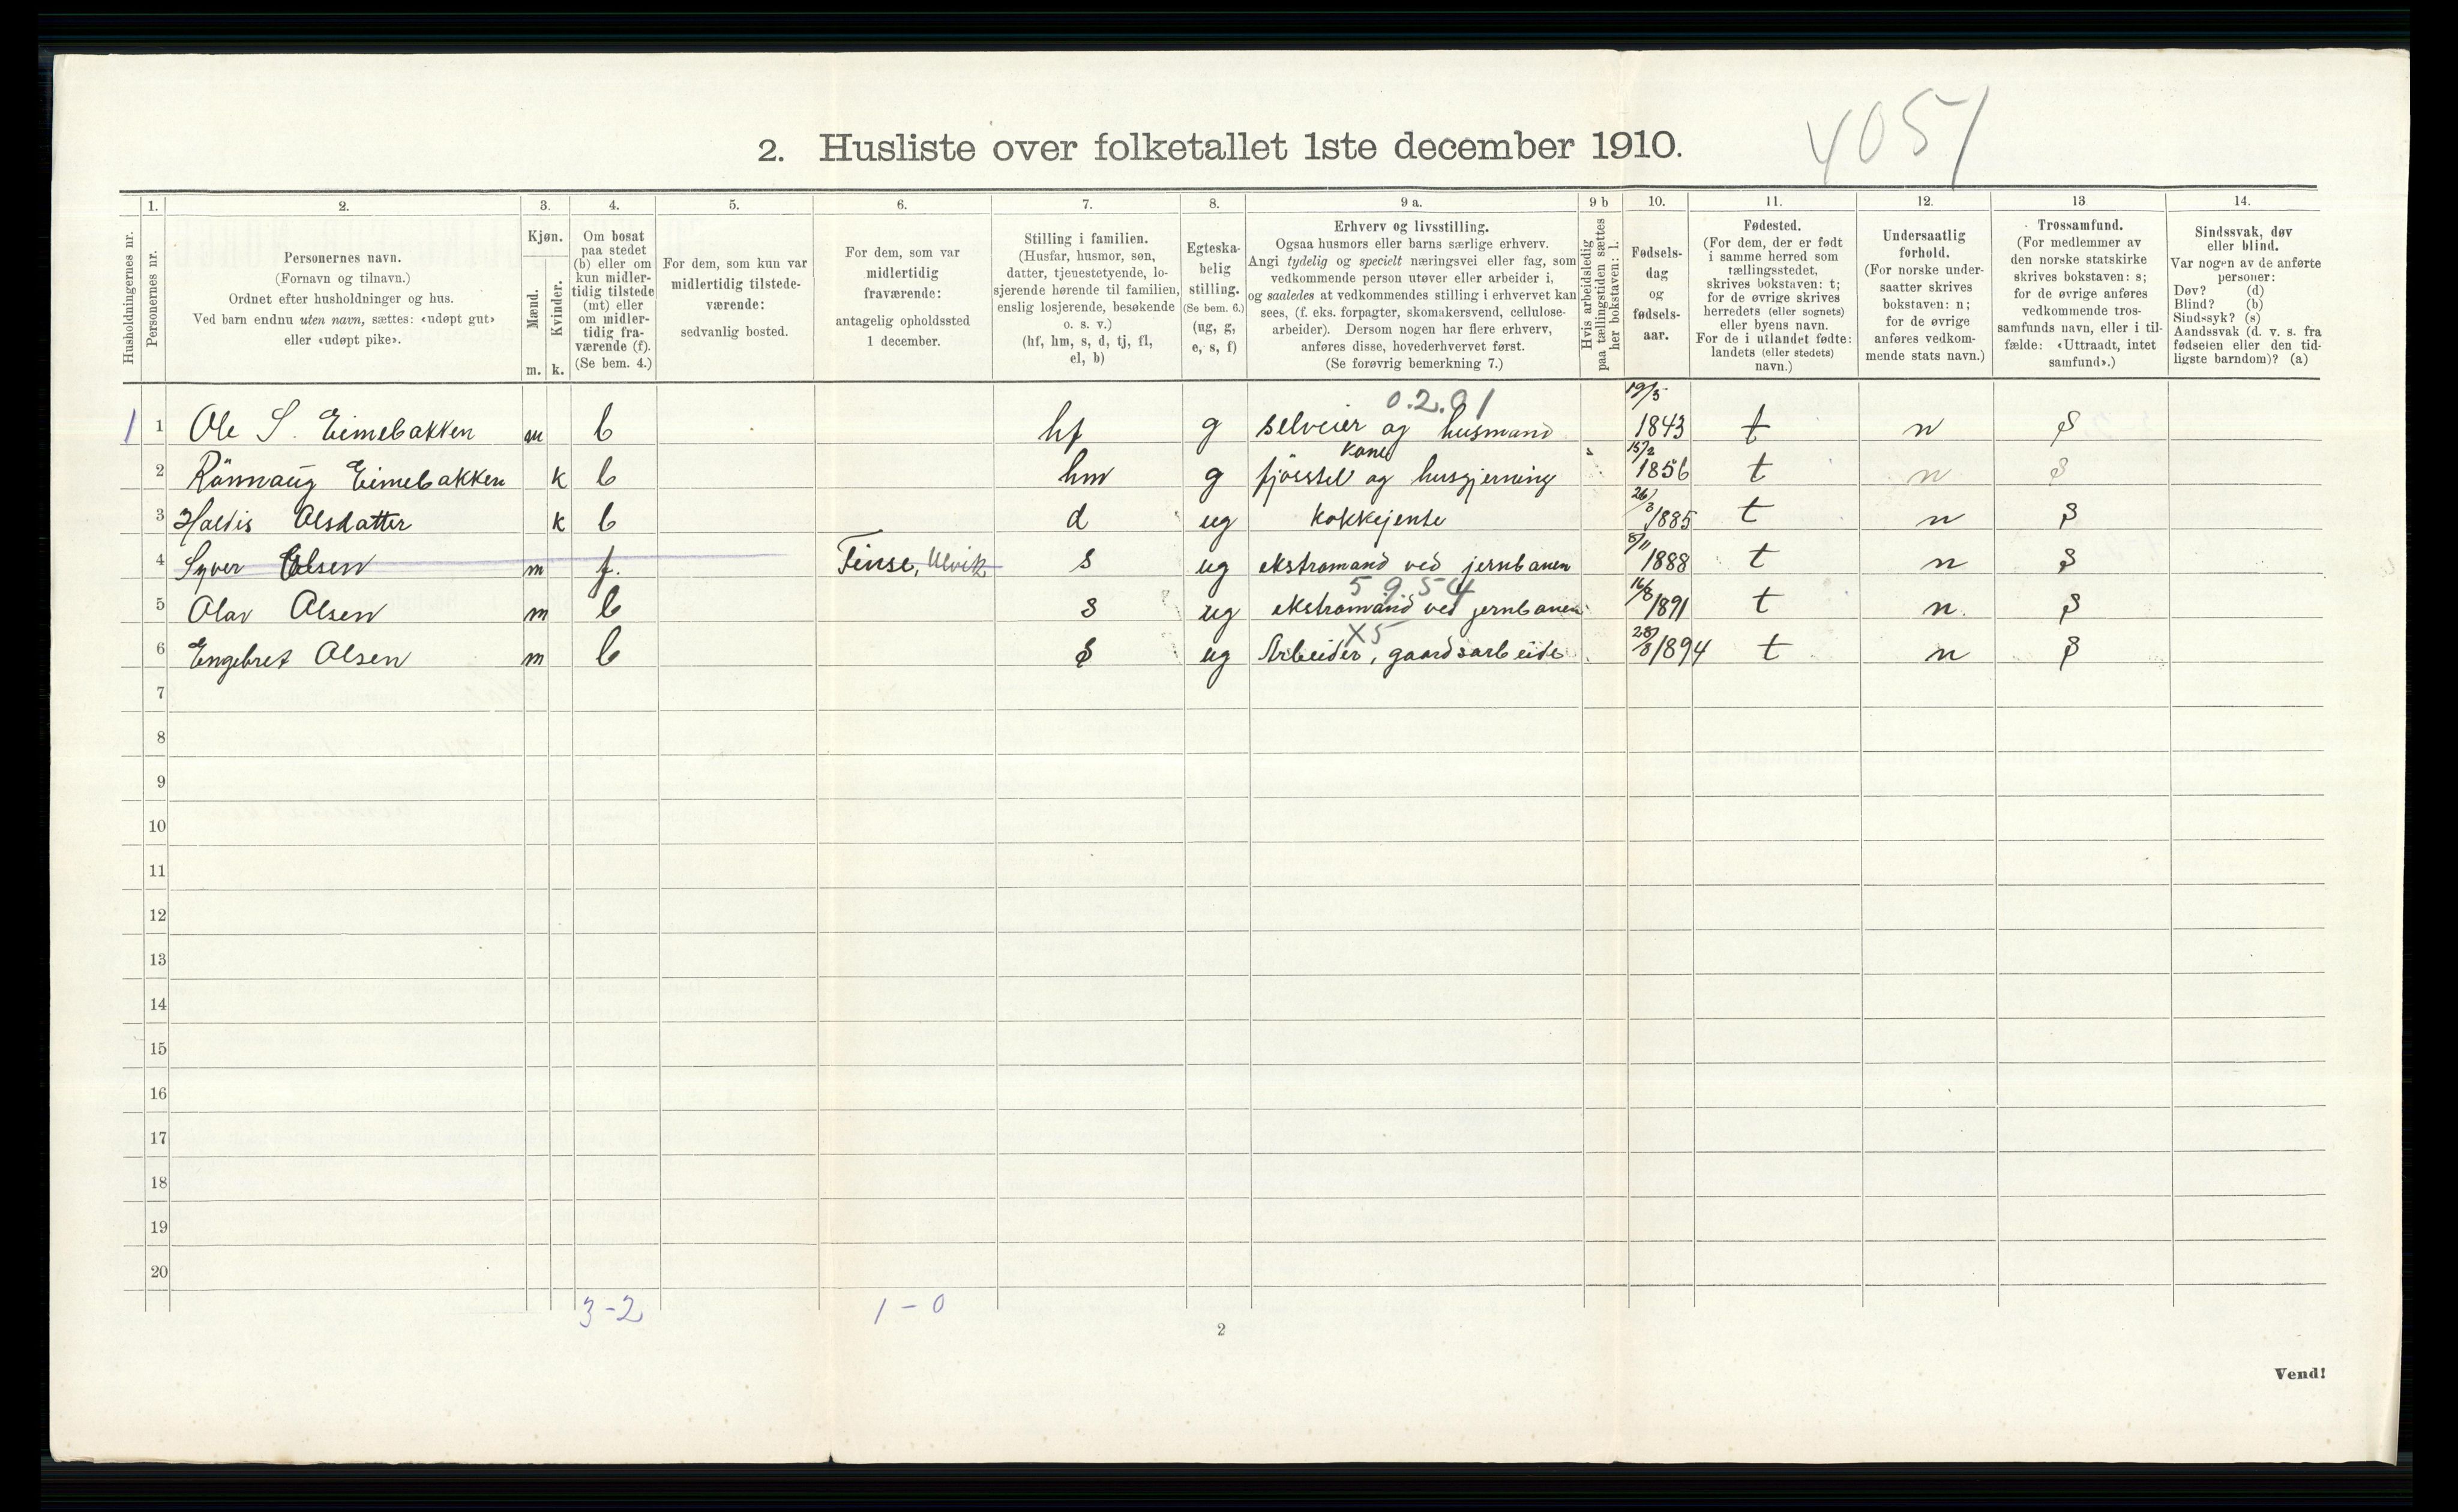 4051
2. Husliste over folketallet 1ste december 1910.
Husholdningernes nr.
1.
Personernes nr.
2.
Personernes navn.
(Fornavn og tilnavn.)
Ordnet efter husholdninger og hus.
Ved barn endnu uten navn, sættes: «udøpt gut»
eller «udøpt pike».
3.
Kjøn.
Mænd.
Kvinder.
m. k.
4.
Om bosat
paa stedet
(b) eller om
kun midler-
tidig tilstede
(mt) eller
om midler-
tidig fra-
værende (f).
(Se bem. 4.)
5.
For dem, som kun var
midlertidig tilstede-
værende:
sedvanlig bosted.
6.
For dem, som var
midlertidig
fraværende:
antagelig opholdssted
1 december.
7.
Stilling i familien.
(Husfar, husmor, søn,
datter, tjenestetyende, lo-
sjerende hørende til familien,
enslig losjerende, besøkende
o. s. v.)
(hf, hm, s, d, tj, fl,
el, b)
8.
Egteska-
belig
stilling.
(Se bem. 6.)
(ug, g,
e, s, f)
9 a.
Erhverv og livsstilling.
Ogsaa husmors eller barns særlige erhverv.
Angi tydelig og specielt næringsvei eller fag, som
vedkommende person utøver eller arbeider i,
og saaledes at vedkommendes stilling i erhvervet kan
sees, (f. eks. forpagter, skomakersvend, cellulose-
arbeider). Dersom nogen har flere erhverv,
anføres disse, hovederhvervet først.
(Se forøvrig bemerkning 7.)
9 b
Hvis arbeidsledig
paa tællingstiden sættes
her bokstaven: l.
10.
Fødsels-
dag
og
fødsels-
aar.
11.
Fødested.
(For dem, der er født
i samme herred som
tællingsstedet,
skrives bokstaven: t;
for de øvrige skrives
herredets (eller sognets)
eller byens navn.
For de i utlandet fødte:
landets (eller stedets)
navn.)
12.
Undersaatlig
forhold.
(For norske under-
saatter skrives
bokstaven: n;
for de øvrige
anføres vedkom-
mende stats navn.)
13.
Trossamfund.
(For medlemmer av
den norske statskirke
skrives bokstaven: s;
for de øvrige anføres
vedkommende tros-
samfunds navn, eller i til-
fælde: «Uttraadt, intet
samfund».)
14.
Sindssvak, døv
eller blind.
Var nogen av de anførte
personer:
Døv? (d)
Blind? (b)
Sindssyk? (s)
Aandssvak (d. v. s. fra
fødselen eller den tid-
ligste barndom)? (a)
0.2.01 19/5
1 1 Ole S. Eimebakken m b hf g selveier og husmand 1843 t n s
kone 15/2
2 Rönnaug Eimebakken k b hm g fjösstel og husgjerning 1856 t n s
3 Haldis Olsdatter k b d ug kokkejente 26/3 1885 t n s
4 Syver Olsen m f. Finse, Ulvik s ug ekstramand ved jernbanen 8/11 1888 t n s
5 9.54
5 Olav Olsen m b s ug ekstramand ved jernbanen 16/8 1891 t n. s
X5
6 Engebret Olsen m b s ug Arbeider, gaardsarbeide 28/8 1894 t n s
7
8
9
10
11
12
13
14
15
16
17
18
19
20
3-2 1-0
2
Vend!